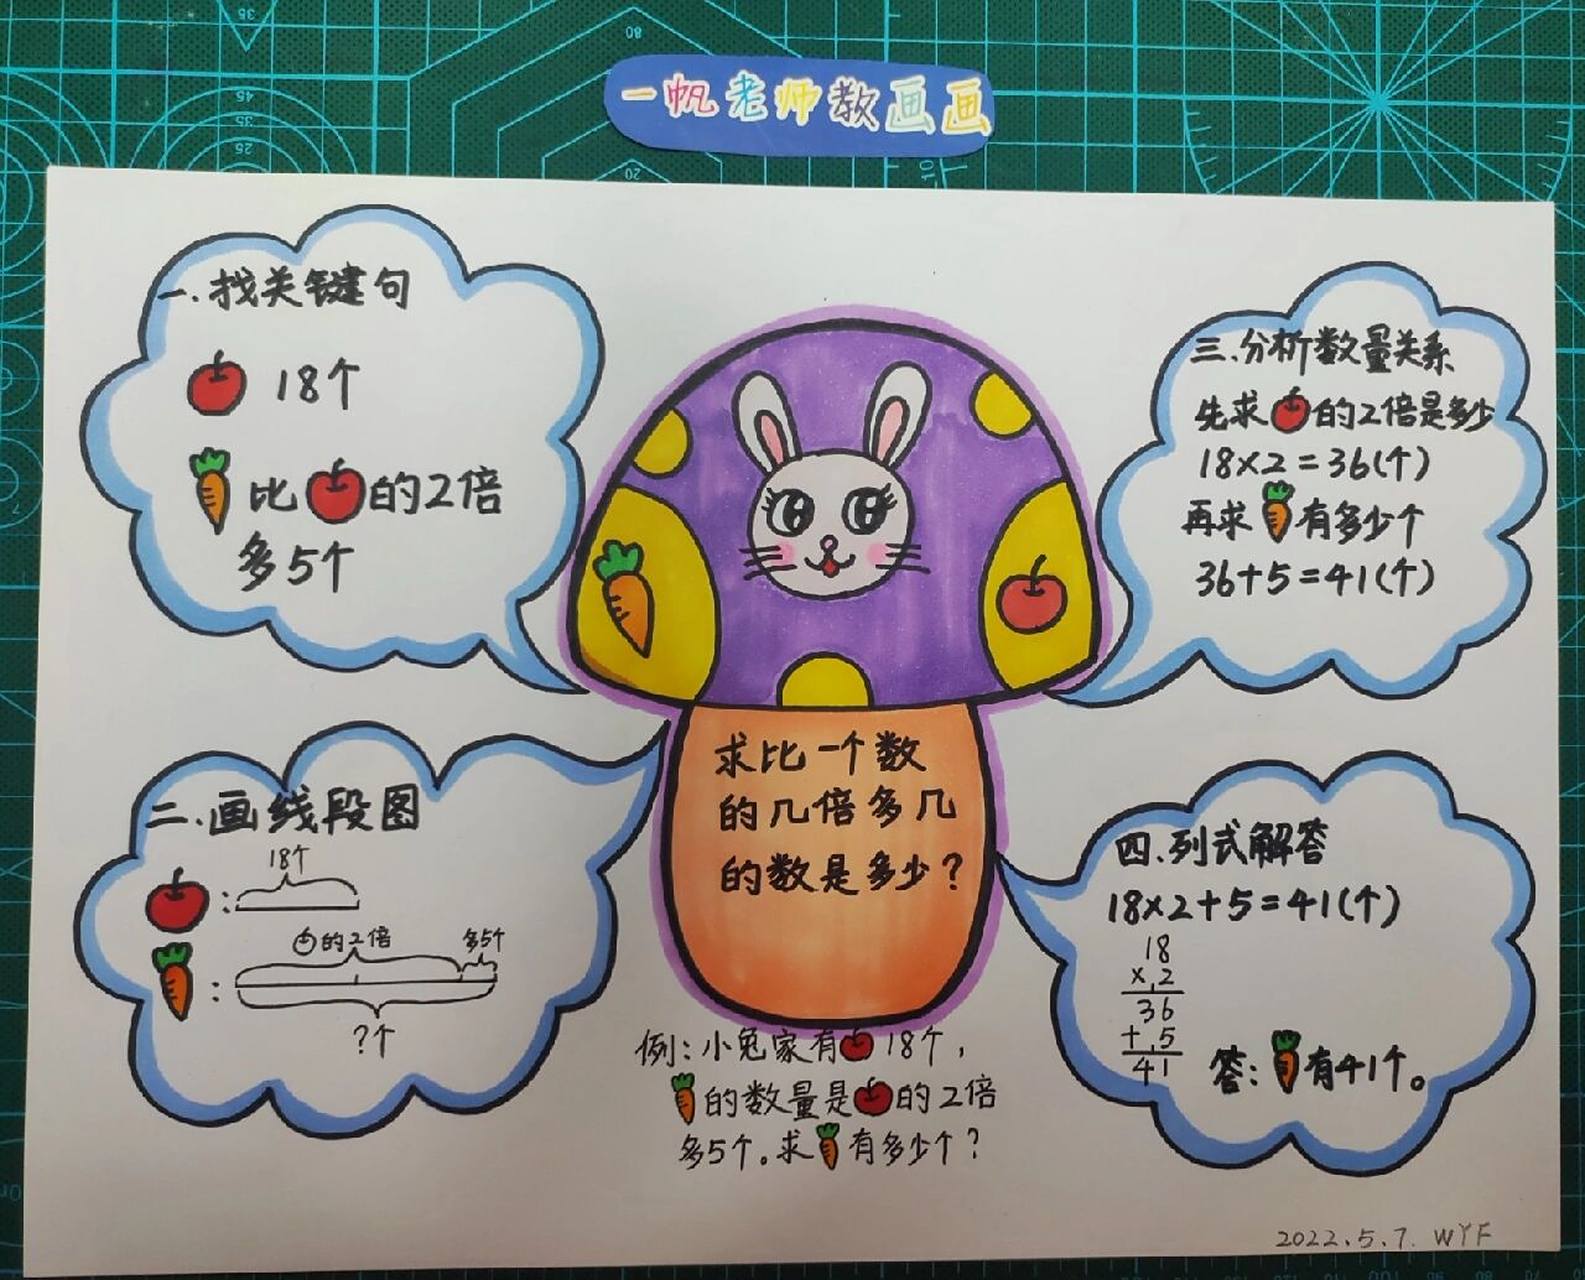 一帆老师教画画
一.找关键句
18个
比的2倍
多5个
二.画线段图
18个
:
的2倍 多5个
:
?个
求比一个数
的几倍多几
的数是多少?
例:小兔家有18个,
的数量是的2倍
多5个。求有多少个?
三.分析数量关系
先求的2倍是多少
18×2=36(个)
再求有多少个
36+5=41(个)
四.列式解答
18×2+5=41(个)
18
×2
36
+5
41
答:有41个。
2022.5.7. WYF